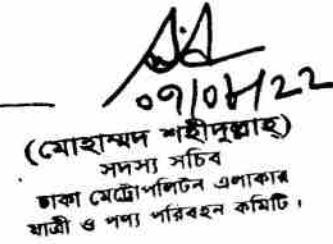 (মোহাম্মদ শহীদুল্লাহ্)
সদস্য সচিব
ঢাকা মেট্রোপলিটন এলাকার
যাত্রী ও পণ্য পরিবহন কমিটি।